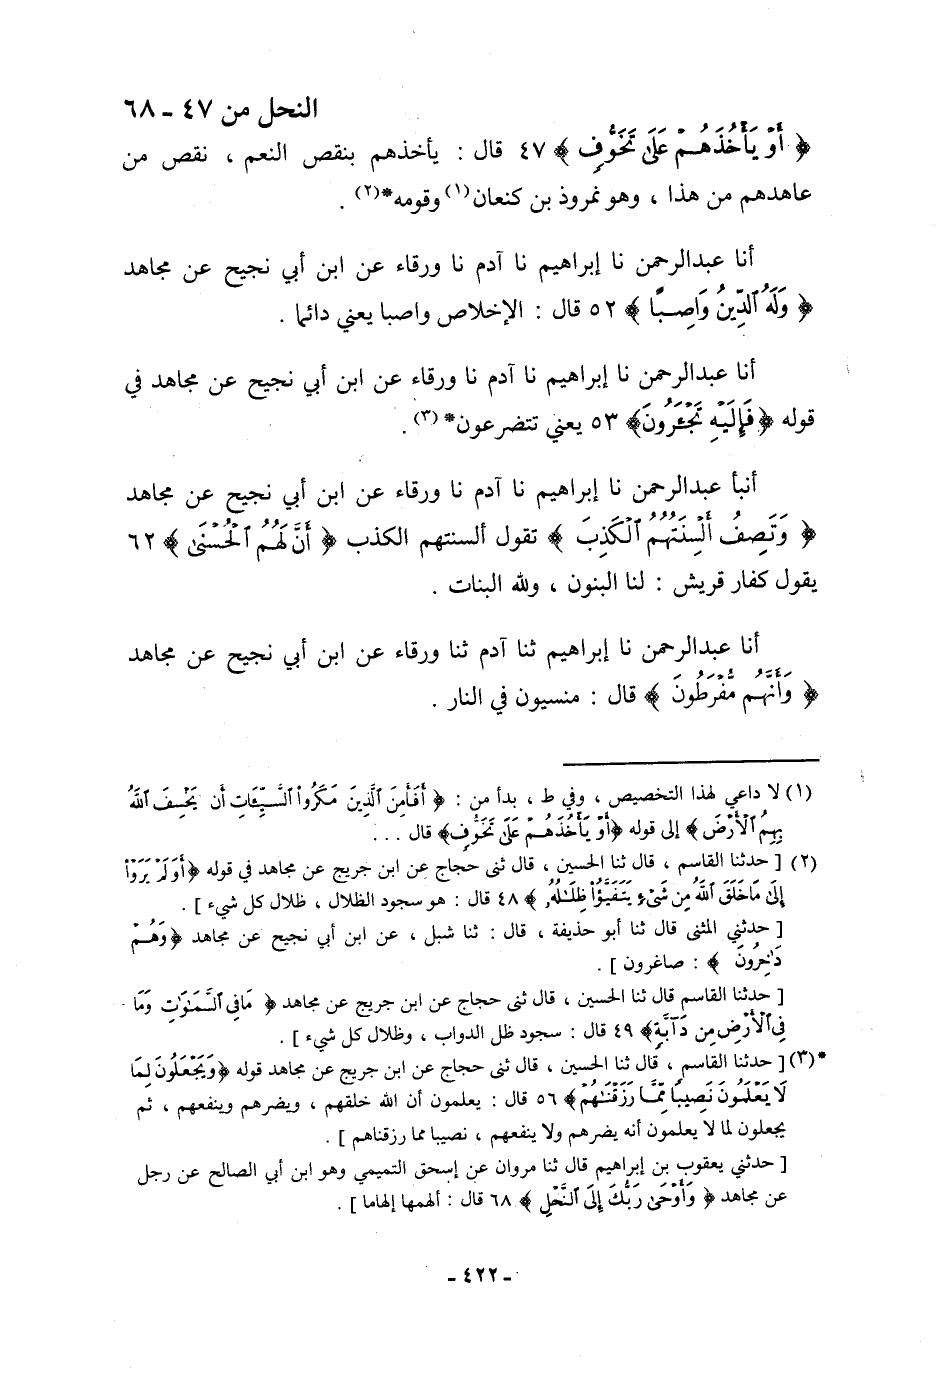 النحل من ٤٧ ـ ٦٨
﴿ أَوْ يَأْخُذَهُمْ عَلَىٰ تَخَوُّفٍ ﴾ ٤٧ قال : يأخذهم بنقص النعم ، نقص من
عاهدهم من هذا ، وهو نمروذ بن كنعان(١) وقومه*(٢) .
أنا عبدالرحمن نا إبراهيم نا آدم نا ورقاء عن ابن أبي نجيح عن مجاهد
﴿ وَلَهُ ٱلدِّينُ وَاصِبًا ﴾ ٥٢ قال : الإخلاص واصبا يعني دائما .
أنا عبدالرحمن نا إبراهيم نا آدم نا ورقاء عن ابن أبي نجيح عن مجاهد في
قوله ﴿ فَإِلَيْهِ تَجْـَٔرُونَ﴾ ٥٣ يعني تتضرعون*(٣) .
أنبأ عبدالرحمن نا إبراهيم نا آدم نا ورقاء عن ابن أبي نجيح عن مجاهد
﴿ وَتَصِفُ أَلْسِنَتُهُمُ ٱلْكَذِبَ ﴾ تقول ألسنتهم الكذب ﴿ أَنَّ لَهُمُ ٱلْحُسْنَىٰ ﴾ ٦٢
يقول كفار قريش : لنا البنون ، ولله البنات .
أنا عبدالرحمن نا إبراهيم ثنا آدم ثنا ورقاء عن ابن أبي نجيح عن مجاهد
﴿ وَأَنَّهُم مُّفْرَطُونَ ﴾ قال : منسيون في النار .
(١) لا داعي لهذا التخصيص ، وفي ط ، بدأ من : ﴿ أَفَأَمِنَ ٱلَّذِينَ مَكَرُوا۟ ٱلسَّيِّـَٔاتِ أَن يَخْسِفَ ٱللَّهُ
بِهِمُ ٱلْأَرْضَ ﴾ إلى قوله ﴿أَوْ يَأْخُذَهُمْ عَلَىٰ تَخَوُّفٍ﴾ قال ...
(٢) [ حدثنا القاسم ، قال ثنا الحسين ، قال ثنى حجاج عن ابن جريج عن مجاهد في قوله ﴿أَوَلَمْ يَرَوْا۟
إِلَىٰ مَا خَلَقَ ٱللَّهُ مِن شَىْءٍ يَتَفَيَّؤُا۟ ظِلَٰلُهُۥ ﴾ ٤٨ قال : هو سجود الظلال ، ظلال كل شيء ] .
[ حدثني المثنى قال ثنا أبو حذيفة ، قال : ثنا شبل ، عن ابن أبي نجيح عن مجاهد ﴿وَهُمْ
دَٰخِرُونَ ﴾ : صاغرون ] .
[ حدثنا القاسم قال ثنا الحسين ، قال ثنى حجاج عن ابن جريج عن مجاهد ﴿ مَا فِى ٱلسَّمَٰوَٰتِ وَمَا
فِى ٱلْأَرْضِ مِن دَآبَّةٍ﴾ ٤٩ قال : سجود ظل الدواب ، وظلال كل شيء ] .
*(٣) [ حدثنا القاسم ، قال ثنا الحسين ، قال ثنى حجاج عن ابن جريج عن مجاهد قوله ﴿وَيَجْعَلُونَ لِمَا
لَا يَعْلَمُونَ نَصِيبًا مِّمَّا رَزَقْنَٰهُمْ﴾ ٥٦ قال : يعلمون أن الله خلقهم ، ويضرهم وينفعهم ، ثم
يجعلون لما لا يعلمون أنه يضرهم ولا ينفعهم ، نصيبا مما رزقناهم ] .
[ حدثني يعقوب بن إبراهيم قال ثنا مروان عن إسحق التميمي وهو ابن أبي الصالح عن رجل
عن مجاهد ﴿ وَأَوْحَىٰ رَبُّكَ إِلَى ٱلنَّحْلِ ﴾ ٦٨ قال : ألهمها إلهاما ] .
ـ ٤٢٢ ـ